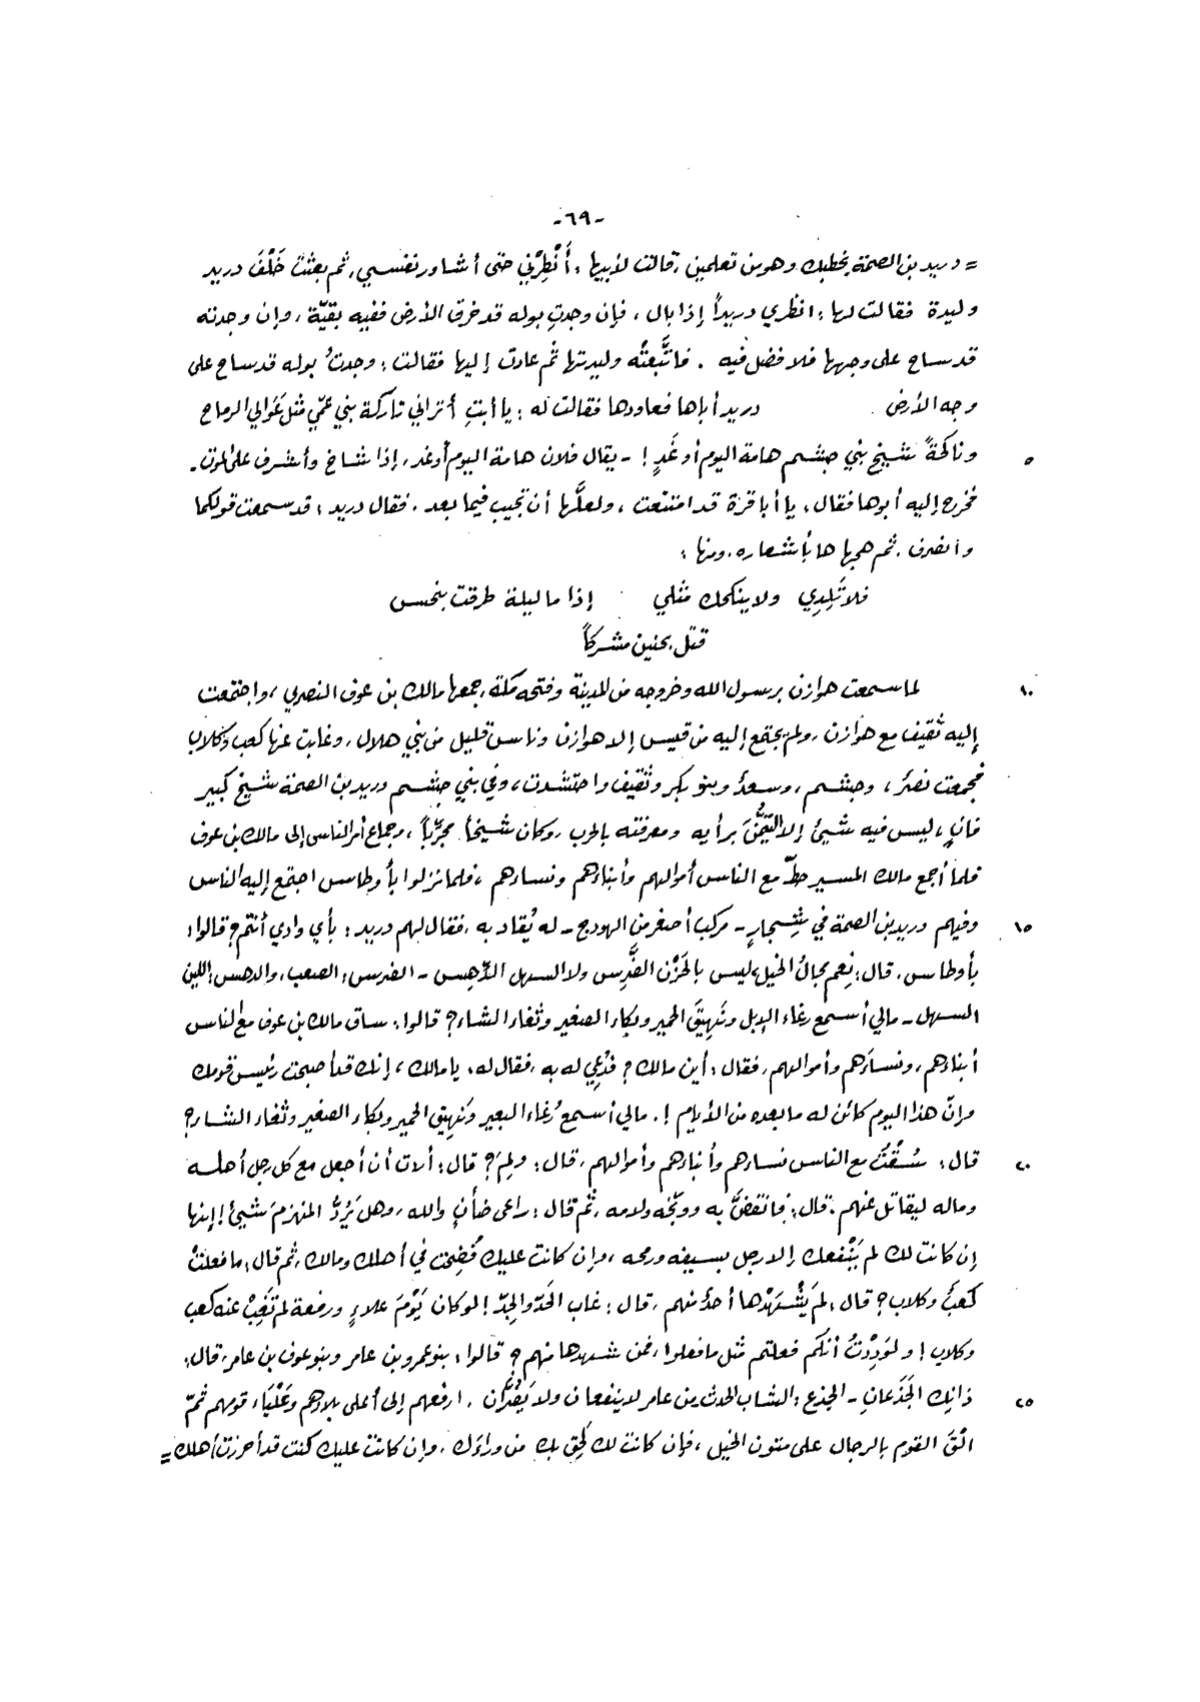 -٦٩-
= دريد بن الصمة يخطبك وهو من تعلمين، قالت لأبيها: أَنْظِرْني حتى أشاور نفسي، ثم بعثتْ خَلْفَ دريد
وليدة فقالت لها: انظري دريداً إذا بال، فإن وجدتِ بوله قد خرق الأرض ففيه بقيّة، وإن وجدته
قد ساح على وجهها فلا فضل فيه. فاتَّبعتْه وليدتها ثم عادت إليها فقالت: وجدتُ بوله قد ساح على
وجه الأرض. دريد أباها فعاودها فقالت له: يا أبتِ أتراني تاركة بني عمّي مثل عَوَالي الرماح
٥ وناكحةً شيخ بني جشم هامة اليوم أو غَدٍ! - يقال فلان هامة اليوم أو غد، إذا شاخ وأشرف على الموت -
فخرج إليه أبوها فقال: يا أبا قرة قد امتنعت، ولعلَّها أن تجيب فيما بعد. فقال دريد: قد سمعت قولكما
وانصرف. ثم هجاها بأشعاره، ومنها:
فلا تَلِدِي ولا ينكحك مثلي إذا ما ليلة طرقت بنحس
قتل بحنين مشركاً
١٠ لما سمعت هوازن برسول الله وخروجه من المدينة وفتحه مكة، جمعها مالك بن عوف النصري، واجتمعت
إليه ثقيف مع هوازن، ولم يجتمع إليه من قيس إلا هوازن وناس قليل من بني هلال، وغابت عنها كعب وكلاب
فجمعت نصرٌ، وجشم، وسعدٌ وبنو بكر وثقيف واحتشدت، وفي بني جشم دريد بن الصمة شيخ كبير
فانٍ، ليس فيه شيئ إلا التيمُّنَ برأيه ومعرفته بالحرب، وكان شيخاً مجرَّباً، وجماع أمر الناس إلى مالك بن عوف
فلما أجمع مالك المسير حطّ مع الناس أموالهم وأبناءهم ونساءهم، فلما نزلوا بأوطاس اجتمع إليه الناس
١٥ وفيهم دريد بن الصمة في شِجارٍ - مركب أصغر من الهودج - له يُقاد به، فقال لهم دريد: بأي وادي أنتم؟ قالوا:
بأوطاس، قال: نِعم مجالُ الخيل، ليس بالحَزْن الضَّرِس ولا السهل الدَّهِس - الضرس: الصعب، والدهس: اللين
السهل - مالي أسمع رغاء الإبل ونَهِيقَ الحمير وبكاء الصغير وثغاء الشاء؟ قالوا: ساق مالك بن عوف مع الناس
أبناءهم، ونساءَهم وأموالهم، فقال: أين مالك؟ فدُعِي له به، فقال له: يا مالك، إنك قد أصبحت رئيس قومك
وإنّ هذا اليوم كائن له ما بعده من الأيام!. مالي أسمع رُغاء البعير ونَهِيقَ الحمير وبكاء الصغير وثغاء الشاء؟
٢٠ قال: سُقْتُ مع الناس نساءهم وأبناءهم وأموالهم، قال: ولِمَ؟ قال: أردت أن أجعل مع كل رجل أهله
وماله ليقاتل عنهم. قال: فانتفضَّ به ووبّخه ولامه، ثم قال: راعي ضأنٍ والله، وهل يَرُدُّ المنهزمَ شيئ! إنها
إن كانت لك لم يَنْفعك إلا رجل بسيفه ورمحه، وإن كانت عليك فُضِحْت في أهلك ومالك، ثم قال: ما فعلتْ
كعبُ وكلاب؟ قال: لم يَشْهَدْها أحدٌ منهم، قال: غاب الحَدّ والجِدّ! لو كان يَوْمَ علاءٍ ورفعة لم تَغِبْ عنه كعب
وكلاب! ولَوَدِدْتُ أنكم فعلتم مثل ما فعلوا، فمن شهدها منهم؟ قالوا: بنو عمرو بن عامر وبنو عوف بن عامر، قال:
٢٥ ذانِك الجَذَعانِ - الجذع: الشاب الحدث من عامر لا ينفعان ولا يَضُرّان. ارفعهم إلى أعلى بلادهم وعَلْيَاء قومهم ثمّ
الْقَ القوم بالرجال على متون الخيل، فإن كانت لك لَحِق بك من وراءَك، وإن كانت عليك كنت قد أحرزت أهلك =